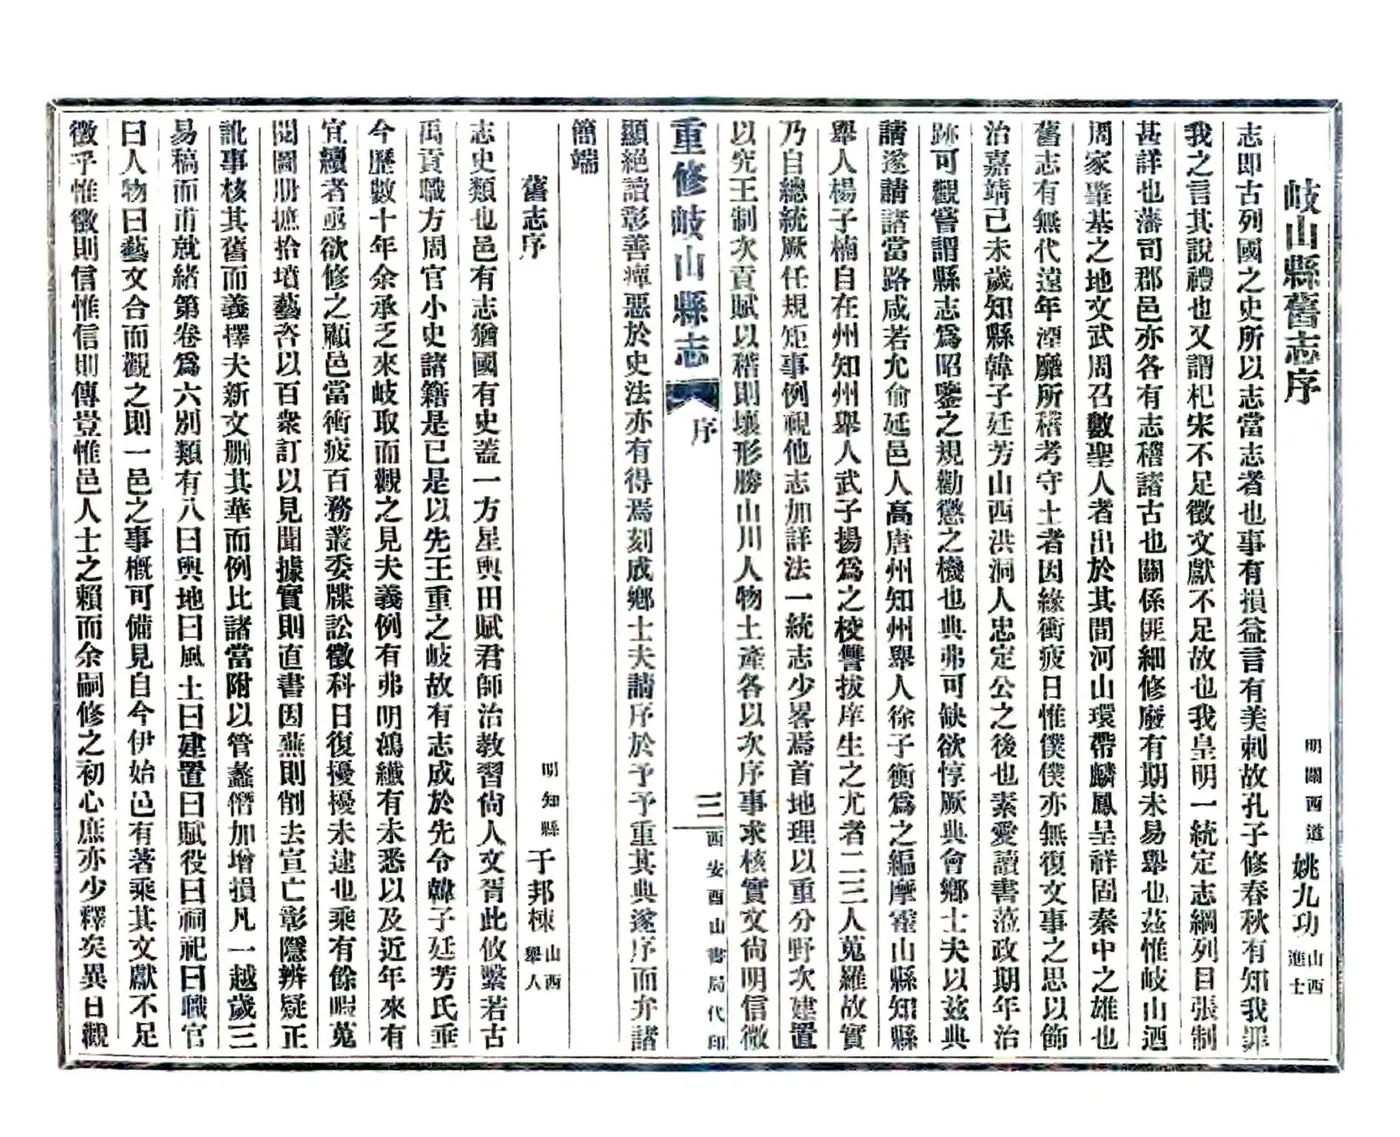 岐山縣舊志序
明關西道姚九功山西進士
志即古列國之史所以志當志者也事有損益言有美刺故孔子修春秋有知我罪
我之言其說禮也又謂杞宋不足徵文獻不足故也我皇明一統定志綱列目張制
甚詳也藩司郡邑亦各有志稽諸古也關係匪細修廢有期未易舉也茲惟岐山迺
周家肇基之地文武周召數聖人者出於其間河山環帶麟鳳呈祥固秦中之雄也
舊志有無代遠年湮靡所稽考守土者因緣衝疲日惟僕僕亦無復文事之思以節
治嘉靖己未歲知縣韓子廷芳山西洪洞人忠定公之後也素愛讀書蒞政期年治
跡可觀嘗謂縣志爲昭鑒之規勸懲之機也典弗可缺欲惇厥典會鄉士夫以茲典
請遂請諸當路咸若允俞延邑人高唐州知州舉人徐子衡爲之編摩霍山縣知縣
舉人楊子楠自在州知州舉人武子揚爲之校讐拔庠生之尤者二三人蒐羅故實
乃自總統厥任規矩事例視他志加詳法一統志少畧焉首地理以重分野次建置
以究王制次貢賦以稽則壤形勝山川人物土產各以次序事求核實文尙明信微
重修岐山縣志
序
三
西安酉山書局代印
顯絕諂彰善癉惡於史法亦有得焉刻成鄉士夫請序於予予重其典遂序而弁諸
簡端
舊志序
明知縣于邦棟山西舉人
志史類也邑有志猶國有史蓋一方星輿田賦君師治教習尙人文胥此攸繫若古
禹貢職方周官小史諸籍是已是以先王重之岐故有志成於先令韓子廷芳氏垂
今歷數十年余承乏來岐取而觀之見夫義例有弗明鴻纖有未悉以及近年來有
宜續者亟欲修之顧邑當衝疲百務叢委牒訟徵科日復擾擾未逮也乘有餘暇蒐
閱圖册摭拾墳藝咨以百衆訂以見聞據實則直書因蕪則削去宣亡彰隱辨疑正
訛事核其舊而義擇夫新文刪其華而例比諸當附以管蠡僭加增損凡一越歲三
易稿而甫就緒第卷爲六別類有八曰輿地曰風土曰建置曰賦役曰祠祀曰職官
曰人物曰藝文合而觀之則一邑之事概可備見自今伊始邑有著乘其文獻不足
徵乎惟徵則信惟信則傳豈惟邑人士之賴而余嗣修之初心庶亦少釋矣異日觀